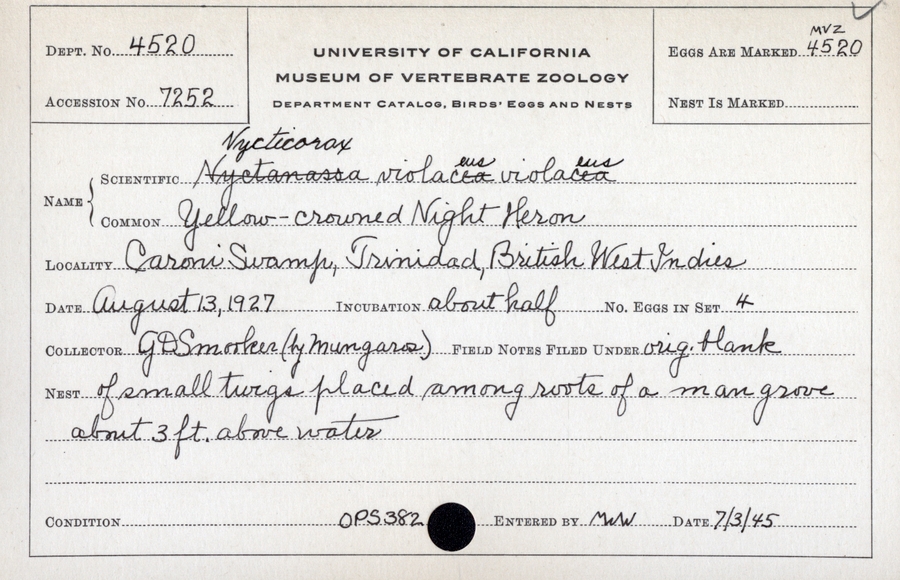 DEPT. NO. 4520
ACCESSION NO. 7252
UNIVERSITY OF CALIFORNIA
MUSEUM OF VERTEBRATE ZOOLOGY
DEPARTMENT CATALOG, BIRDS' EGGS AND NESTS
MVZ
EGGS ARE MARKED 4520
NEST IS MARKED
Nycticorax
eus eus
NAME { SCIENTIFIC Nyctanassa violacea violacea
COMMON Yellow-crowned Night Heron
LOCALITY Caroni Swamp, Trinidad, British West Indies
DATE August 13, 1927 INCUBATION about half NO. EGGS IN SET 4
COLLECTOR GDSmooker (by Mungaroo) FIELD NOTES FILED UNDER orig. blank
NEST of small twigs placed among roots of a mangrove
about 3 ft. above water
CONDITION OPS382 ENTERED BY MWW DATE 7/3/45